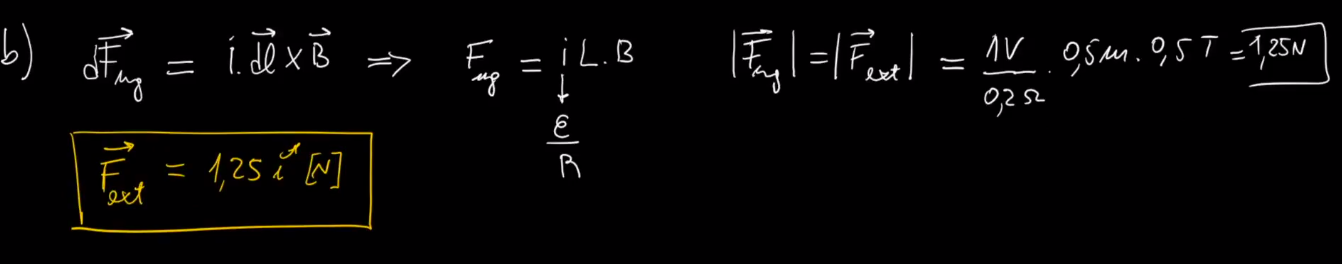 b) dF⃗mg = i.dl⃗ x B⃗ => Fmg = i L.B |F⃗mg| = |F⃗ext| = 1V/0,2Ω . 0,5m. 0,5T = 1,25N
↓
ε/R
F⃗ext = 1,25 i^ [N]